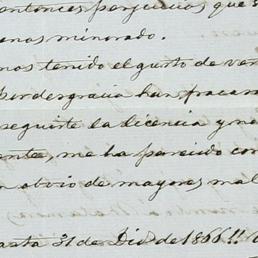 entonces perjuicios que s
enos minorado.
mos tenido el gusto de ver
por desgracia han fracas
seguirte la licencia y ne
ente, me ha parecido con
n obvio de mayores mal
asta 31 de Dic de 1866!!